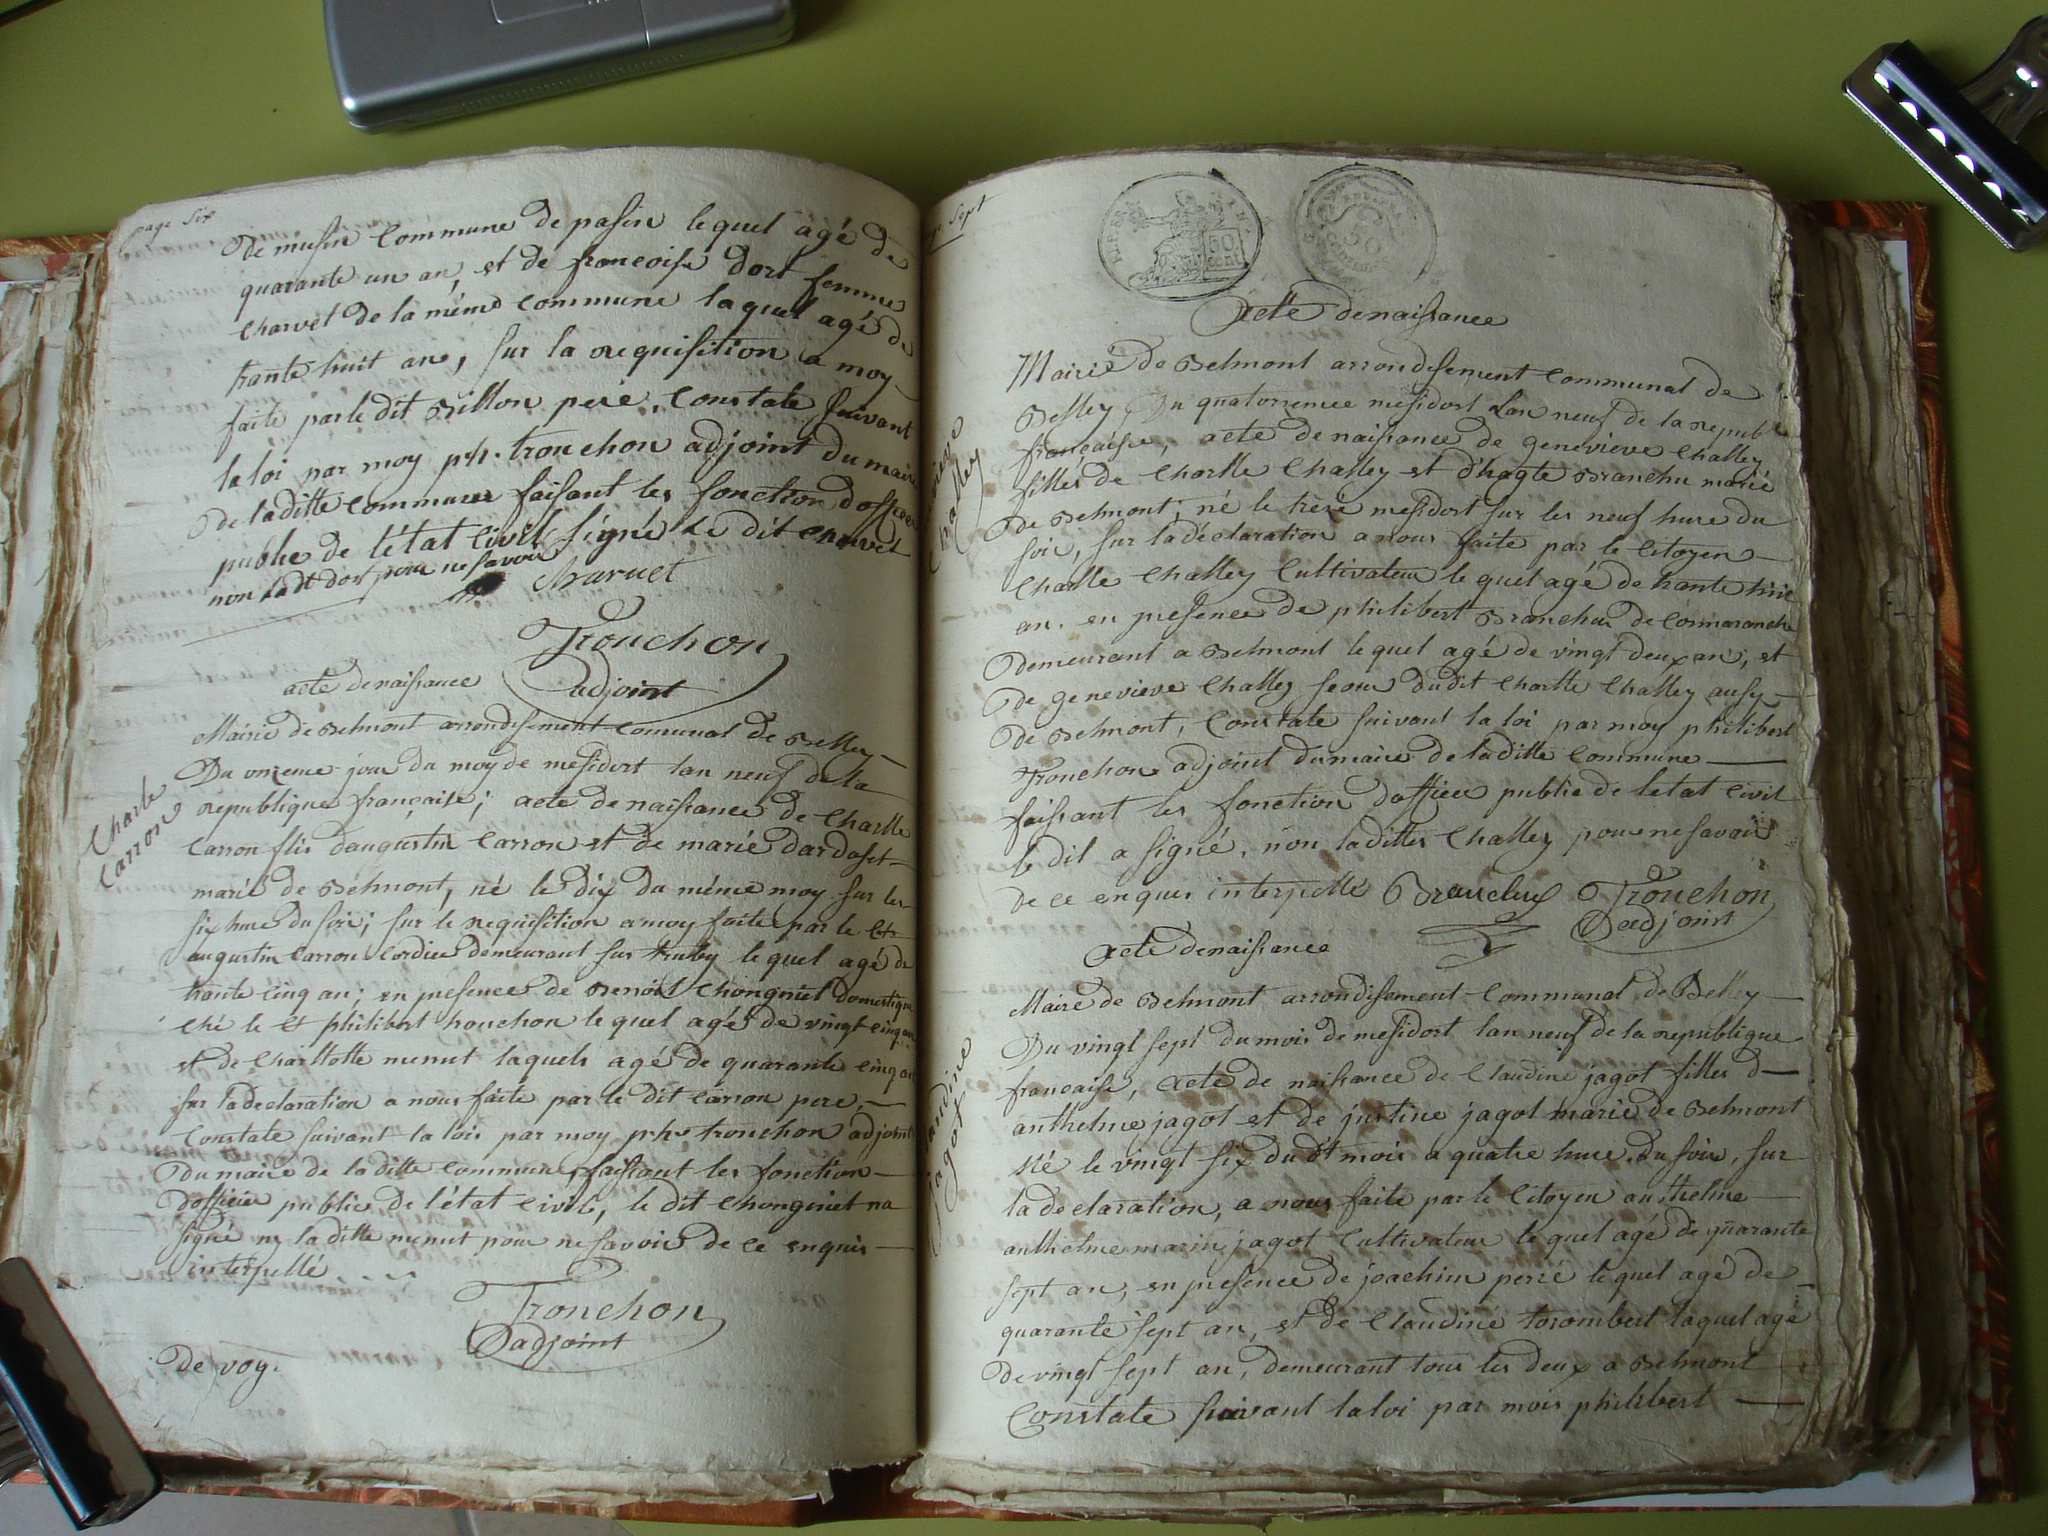 page Six
De musin Commune de pasin lequel agé de
quarante un an, et de francoise dort femme
Charvet de la méme Commune laquel agé de
trante huit ans, sur la requisition a moy
faite par le dit Billon pere, Constate Suivant
la loi par moy ph. trouchon adjoint du maire
De laditte Commune faisant les fonction dofficier
public de létat Civil Signé Le dit Charvet
non ladt dort pour ne savoir
Charuet
Trouchon
adjoint
acte de naissance
Mairie de Belmont arrondisement Comunal de Belley
Du onzeme jour du moy de mesidort lan neuf de la
republique française; acte de naissance de Charlle
Carron flis daugustin Carron et de marié dardaset
marié de Belmont, né le dix du méme moy sur les
six hure du soir; sur le requisition a moy faite par le Ctn
augustin Carron Cordier demeurant sur truby le quel agé de
trante cinq an; en presence de Benoit Chongniel domestique
Ché le Ct philibert trouchon le quel agé de vingt cinq an
et de Charllotte menut laquels agé de quarante cinq an
sur la declaration a nous faite par le dit Carron pere,
Constate suivant la lois par moy phe trouchon adjoint
Du maire de laditte Commune faissant les fonction
Dofficier public de létat Civile, le dit Chongniet na
signé ny laditte menut pour ne savoir de ce enquis
interpellé
Trouchon
adjoint
de voy.
Charle
Carron
Sept
50
cent
50
Acte de naissance
Mairie de Belmont arrondisement Communal de
Belley Du quatorzemee mesidort Lan neuf de la repub
française, acte de naissance de genevieve Challey
filles de Charlle Challey et d'hagte Branchu marié
de Belmont, né le trèze mesidort sur les neuf hure du
soir, sur la déclaration a nous faite par le Citoyen
Charlle Challey Cultivateur le quel agé de trante
an. en presence de philibert Branchu de Cormaranche
Demeurant a Belmont le quel agé de vingt deux an, et
De genevieve Challey seour du dit Charlle Challey ausy
De Belmont, Constate suivant la loi par moy philibert
Trouchon adjoint du maire de laditte Commune
faissant les fonction dofficier public de létat Civil
le dit a signé, non laditte Challey pour ne savoir
De ce enquis interpellé Branchu Trouchon
adjoint
Challey
Acte de naissance
Maire de Belmont arrondissement Communal de Belley
Du vingt sept du mois de mesidort lan neuf de la republique
francaise, acte de naissance de Claudine jagot filles d
anthelme jagot et de justine jagot marié de Belmont
Né le vingt six du dt mois a quatre hure du soir, sur
la declaration, a nous faite par le Citoyen anthelme
anthelme marin jagot Cultivateur le quel agé de quarante
sept an, en presence de joachim perré le quel agé de
quarante sept an, et de Claudine torombert laquel agé
De vingt sept an, demeurant tous les deux a Belmont
Constate suivant la loi par mois philibert
Claudine
jagot